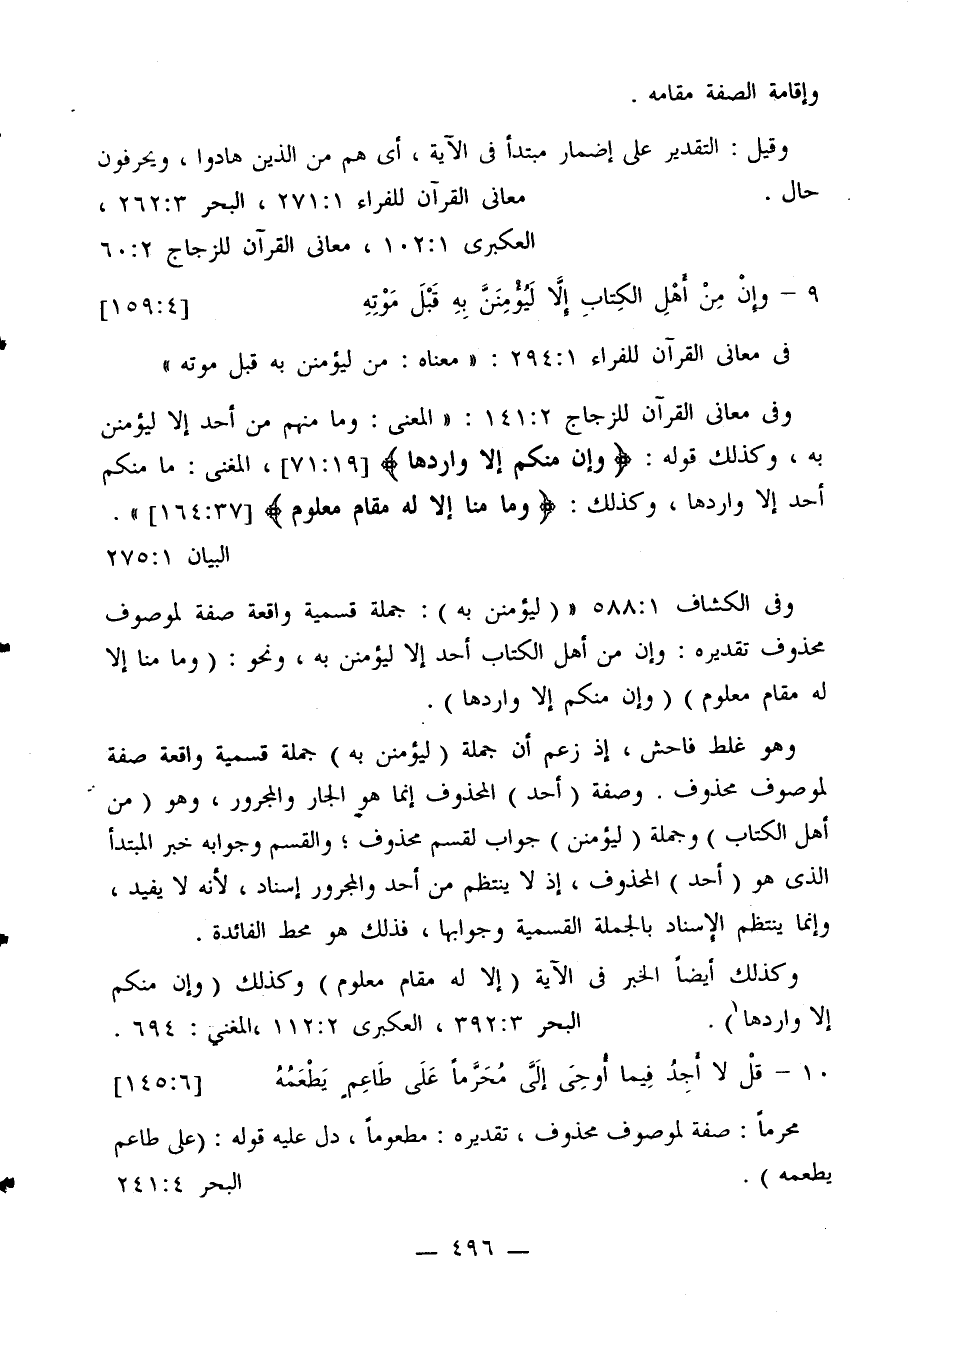 وإقامة الصفة مقامه .
وقيل : التقدير على إضمار مبتدأ فى الآية ، أى هم من الذين هادوا ، ويحرفون
حال . معانى القرآن للفراء ١:٢٧١ ، البحر ٣:٢٦٢ ،
العكبرى ١:١٠٢ ، معانى القرآن للزجاج ٢:٦٠
٩ – وإِنْ مِنْ أَهْلِ الكِتابِ إِلَّا لَيُؤْمِنَنَّ بِهِ قَبْلَ مَوْتِهِ [٤:١٥٩]
فى معانى القرآن للفراء ١:٢٩٤ : « معناه : من ليؤمنن به قبل موته »
وفى معانى القرآن للزجاج ٢:١٤١ : « المعنى : وما منهم من أحد إلا ليؤمنن
به ، وكذلك قوله : ﴿ وإن منكم إلا واردها ﴾ [١٩:٧١] ، المغنى : ما منكم
أحد إلا واردها ، وكذلك : ﴿ وما منا إلا له مقام معلوم ﴾ [٣٧:١٦٤] » .
البيان ١:٢٧٥
وفى الكشاف ١:٥٨٨ « ( ليؤمنن به ) : جملة قسمية واقعة صفة لموصوف
محذوف تقديره : وإن من أهل الكتاب أحد إلا ليؤمنن به ، ونحو : ( وما منا إلا
له مقام معلوم ) ( وإن منكم إلا واردها ) .
وهو غلط فاحش ، إذ زعم أن جملة ( ليؤمنن به ) جملة قسمية واقعة صفة
لموصوف محذوف . وصفة ( أحد ) المحذوف إنما هو الجار والمجرور ، وهو ( من
أهل الكتاب ) وجملة ( ليؤمنن ) جواب لقسم محذوف ؛ والقسم وجوابه خبر المبتدأ
الذى هو ( أحد ) المحذوف ، إذ لا ينتظم من أحد والمجرور إسناد ، لأنه لا يفيد ،
وإنما ينتظم الإسناد بالجملة القسمية وجوابها ، فذلك هو محط الفائدة .
وكذلك أيضاً الخبر فى الآية ( إلا له مقام معلوم ) وكذلك ( وإن منكم
إلا واردها ) . البحر ٣:٣٩٢ ، العكبرى ٢:١١٢ ،المغني : ٦٩٤ .
١٠ – قُلْ لا أَجِدُ فِيما أُوحِىَ إِلَىَّ مُحَرَّماً عَلَى طَاعِمٍ يَطْعَمُهُ [٦:١٤٥]
محرماً : صفة لموصوف محذوف ، تقديره : مطعوماً ، دل عليه قوله : (على طاعم
يطعمه ) . البحر ٤:٢٤١
— ٤٩٦ —